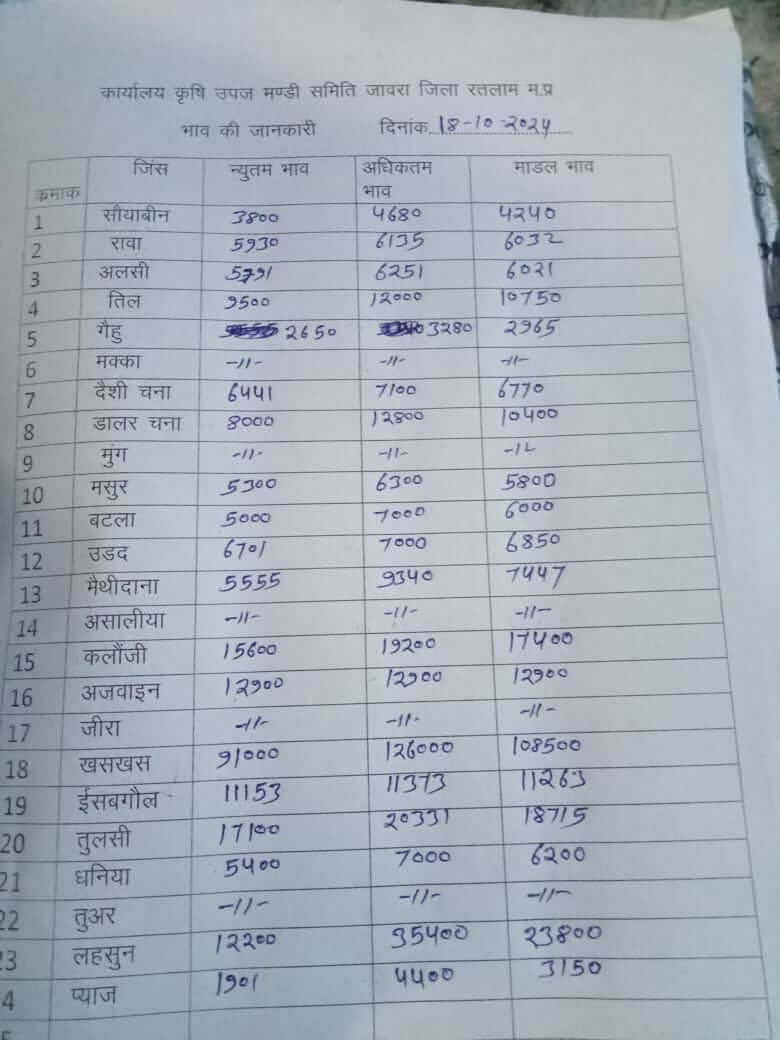 कार्यालय कृषि उपज मण्डी समिति जावरा जिला रतलाम म.प्र
भाव की जानकारी दिनांक 18-10-2024
कमाक जिंस न्युतम भाव अधिकतम भाव माडल भाव
1 सौयाबीन 3800 4680 4240
2 रावा 5930 6135 6032
3 अलसी 5791 6251 6021
4 तिल 9500 12000 10750
5 गैहु 2650 3280 2965
6 मक्का -11- -11- -11-
7 दैशी चना 6441 7100 6770
8 डालर चना 8000 12800 10400
9 मुंग -11- -11- -11-
10 मसुर 5300 6300 5800
11 बटला 5000 7000 6000
12 उडद 6701 7000 6850
13 मैथीदाना 5555 9340 7447
14 असालीया -11- -11- -11-
15 कलौंजी 15600 19200 17400
16 अजवाइन 12900 12900 12900
17 जीरा -11- -11- -11-
18 खसखस 91000 126000 108500
19 ईसबगौल 11153 11373 11263
20 तुलसी 17100 20331 18715
21 धनिया 5400 7000 6200
22 तुअर -11- -11- -11-
23 लहसुन 12200 35400 23800
4 प्याज 1901 4400 3150